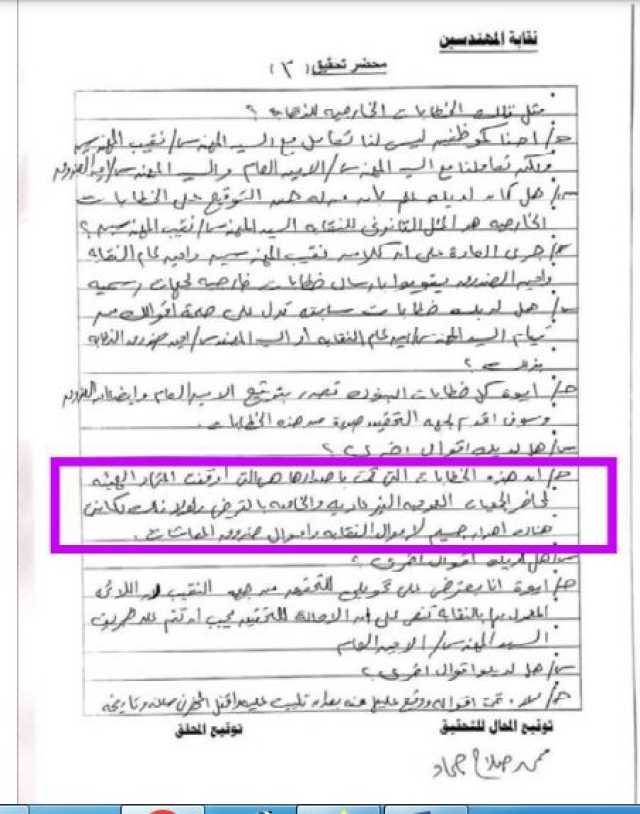 نقابة المهندسين
محضر تحقيق (٣)
مثل تلك الخطابات الخارجية للنقابة ؟
ج/ احنا كموظفين ليس لنا تعامل مع السيد المهندس/ نقيب المهندسين
ولكن تعاملنا مع السيد المهندس/ الامين العام والسيد المهندس/ امين الصندوق
س/ هل كان لديك علم لأن من له حق التوقيع على الخطابات
الخارجية هو الممثل القانونى للنقابه السيد المهندس/ نقيب المهندسين ؟
ج/ جرى العادة على ان كلا من نقيب المهندسين وامين عام النقابه
وامين الصندوق يقوموا بارسال خطابات خارجيه لجهات رسميه
س/ هل لديك خطابات سابقه تدل على صحة أقوالك من
قيام السيد المهندس/ امين عام النقابه او السيد المهندس/ امين صندوق النقابه
بذلك ؟
ج/ ايوة كل خطابات البنوك تصدر بتوقيع الامين العام وايضا امين الصندوق
وسوف اقدم لجهه التحقيق صورة من هذه الخطابات .
س/ هل لديك اقوال اخرى ؟
ج/ ان هذه الخطابات التى تمت باصدارها هى التى أوقفت انهيار الهيئه
لمحاضر الجمعيات العموميه الغير عاديه والخاصه بالقرض ولولا ذلك لكانت
هناك اضرار جسيم لاموال النقابه واموال صندوق المعاشات .
س/ هل لديك اقوال اخرى ؟
ج/ ايوة انا بعترض على تحويلى للتحقيق من جهه النقيب لان اللائحه
المعمول بها بالنقابه تنص على ان الاحاله للتحقيق يجب ان تتم عن طريق
السيد المهندس/ الامين العام
س/ هل لديك اقوال اخرى ؟
ج/ لا . تمت اقواله ووقع عليها منه بعد ان تليت عليه واقفل المحضر فى ساعته وتاريخه
توقيع المحال للتحقيق
توقيع المحقق
محمد صلاح حماد